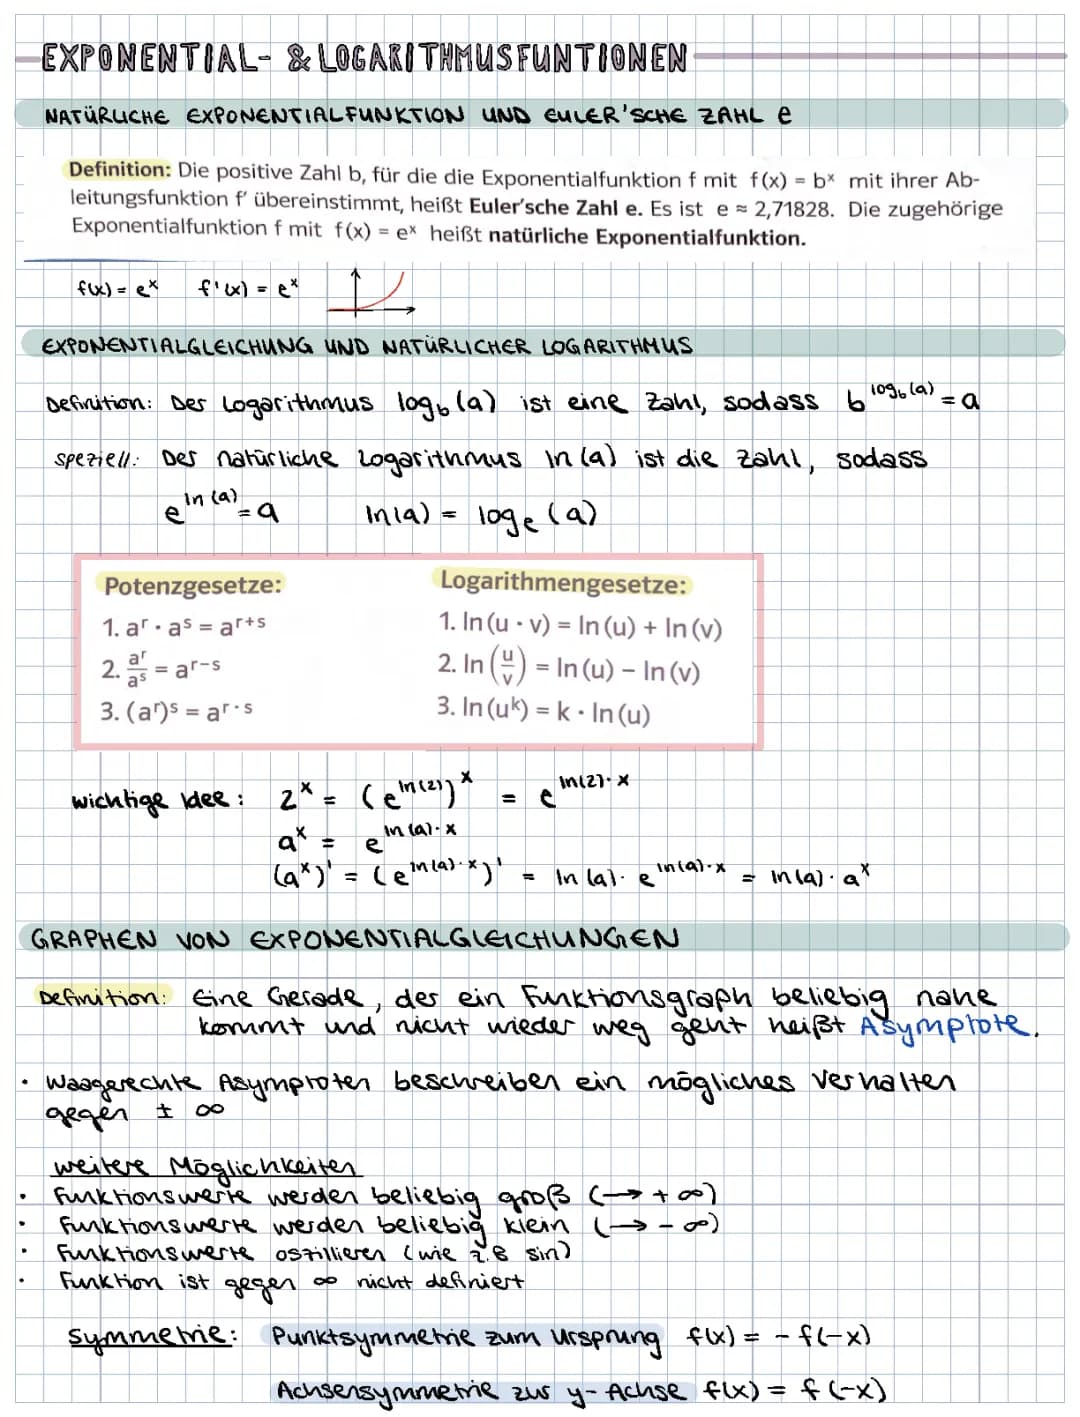 EXPONENTIAL- & LOGARITHMUSFUNTIONEN
NATÜRLICHE EXPONENTIALFUNKTION UND EULER'SCHE ZAHL e
Definition: Die positive Zahl b, für die die Exponentialfunktion f mit f(x) = bˣ mit ihrer Ab-
leitungsfunktion f' übereinstimmt, heißt Euler'sche Zahl e. Es ist e ≈ 2,71828. Die zugehörige
Exponentialfunktion f mit f(x) = eˣ heißt natürliche Exponentialfunktion.
f(x) = eˣ f'(x) = eˣ
EXPONENTIALGLEICHUNG UND NATÜRLICHER LOGARITHMUS
Definition: Der Logarithmus log_b (a) ist eine Zahl, sodass b^log_b(a) = a
speziell: Der natürliche Logarithmus ln (a) ist die Zahl, sodass
e^ln(a) = a ln(a) = log_e (a)
Potenzgesetze: Logarithmengesetze:
1. aʳ · aˢ = aʳ⁺ˢ 1. ln (u · v) = ln (u) + ln (v)
2. aʳ/aˢ = aʳ⁻ˢ 2. ln (u/v) = ln (u) – ln (v)
3. (aʳ)ˢ = a^r·s 3. ln (uᵏ) = k · ln (u)
wichtige Idee: 2ˣ = (e^ln(2))ˣ = e^ln(2)·x
aˣ = e^ln(a)·x
(aˣ)' = (e^ln(a)·x)' = ln (a) · e^ln(a)·x = ln(a) · aˣ
GRAPHEN VON EXPONENTIALGLEICHUNGEN
Definition: Eine Gerade, der ein Funktionsgraph beliebig nahe
kommt und nicht wieder weg geht heißt Asymptote.
• Waagerechte Asymptoten beschreiben ein mögliches Verhalten
gegen ± ∞
weitere Möglichkeiten
• Funktionswerte werden beliebig groß (→ + ∞)
• Funktionswerte werden beliebig klein (→ - ∞)
• Funktionswerte oszillieren (wie z.B sin)
• Funktion ist gegen ∞ nicht definiert
Symmetrie: Punktsymmetrie zum Ursprung f(x) = - f(-x)
Achsensymmetrie zur y-Achse f(x) = f (-x)